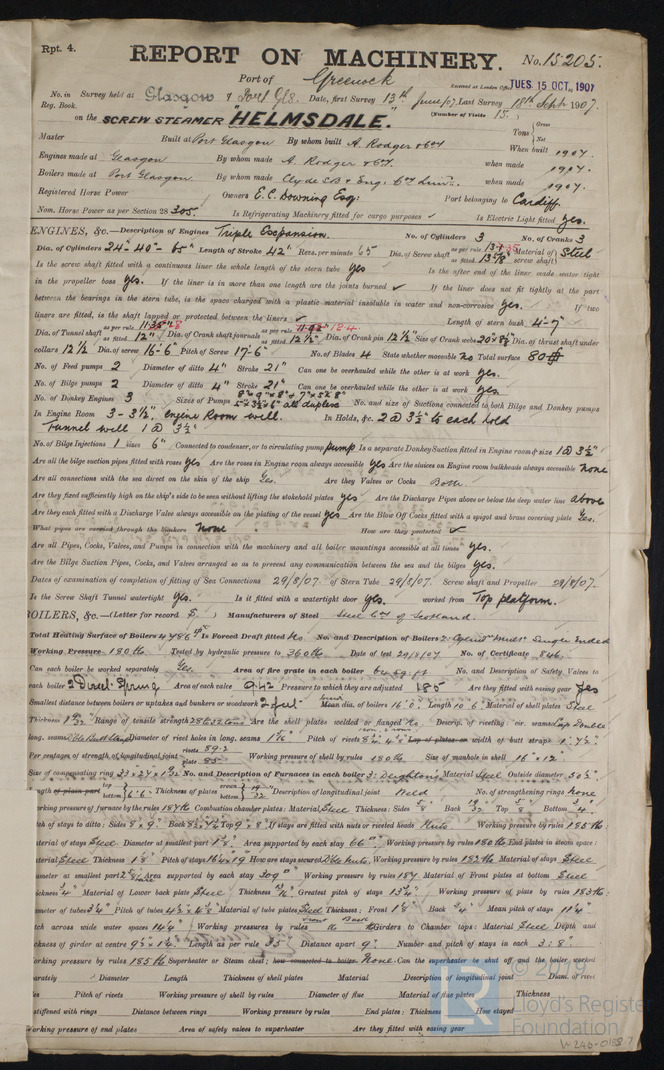 Rpt. 4.
REPORT ON MACHINERY. No. 15205.
Port of Greenock
Received at London Office TUES. 15 OCT. 1907
No. in Survey held at Glasgow & Port Gls. Date, first Survey 13th June/07. Last Survey 18th Sept 1907.
Reg. Book.
(Number of Visits 15.)
on the SCREW STEAMER "HELMSDALE."
Tons Gross
Net
Master Built at Port Glasgow By whom built A. Rodger & Coy When built 1907.
Engines made at Glasgow By whom made A. Rodger & Coy. when made 1907.
Boilers made at Port Glasgow By whom made Clyde S.B & Eng: Coy Lim. when made 1907.
Registered Horse Power Owners E.C. Downing Esq: Port belonging to Cardiff
Nom. Horse Power as per Section 28 305. Is Refrigerating Machinery fitted for cargo purposes Is Electric Light fitted Yes.
ENGINES, &c.—Description of Engines Triple Expansion. No. of Cylinders 3 No. of Cranks 3
Dia. of Cylinders 24"-40"-65" Length of Stroke 42" Revs. per minute 65 Dia. of Screw shaft as per rule as fitted 13 7/8" Material of screw shaft) Steel
Is the screw shaft fitted with a continuous liner the whole length of the stern tube yes Is the after end of the liner made water tight
in the propeller boss yes. If the liner is in more than one length are the joints burned ✓ If the liner does not fit tightly at the part
between the bearings in the stern tube, is the space charged with a plastic material insoluble in water and non-corrosive yes. If two
liners are fitted, is the shaft lapped or protected between the liners ✓ Length of stern bush 4-7"
Dia. of Tunnel shaft as per rule as fitted 12" Dia. of Crank shaft journals as per rule as fitted 12 1/2" Dia. of Crank pin 12 1/2" Size of Crank webs Dia. of thrust shaft under
collars 12 1/2 Dia. of screw 16-6" Pitch of Screw 17-6" No. of Blades 4 State whether moveable no Total surface 80
No. of Feed pumps 2 Diameter of ditto 4" Stroke 21" Can one be overhauled while the other is at work yes.
No. of Bilge pumps 2 Diameter of ditto 4" Stroke 21" Can one be overhauled while the other is at work yes.
No. of Donkey Engines 3 Sizes of Pumps all duplex No. and size of Suctions connected to both Bilge and Donkey pumps
In Engine Room 3-3 1/2" Engine Room well. In Holds, &c. 2 @ 3 1/2" to each hold
Tunnel well 1 @ 3 1/2"
No. of Bilge Injections 1 sizes 6" Connected to condenser, or to circulating pump pump Is a separate Donkey Suction fitted in Engine room & size 1 @ 3 1/2"
Are all the bilge suction pipes fitted with roses yes Are the roses in Engine room always accessible yes Are the sluices on Engine room bulkheads always accessible none
Are all connections with the sea direct on the skin of the ship Yes. Are they Valves or Cocks Both.
Are they fixed sufficiently high on the ship's side to be seen without lifting the stokehold plates yes Are the Discharge Pipes above or below the deep water line above
Are they each fitted with a Discharge Valve always accessible on the plating of the vessel yes Are the Blow Off Cocks fitted with a spigot and brass covering plate Yes.
What pipes are carried through the bunkers none How are they protected ✓
Are all Pipes, Cocks, Valves, and Pumps in connection with the machinery and all boiler mountings accessible at all times yes.
Are the Bilge Suction Pipes, Cocks, and Valves arranged so as to prevent any communication between the sea and the bilges yes.
Dates of examination of completion of fitting of Sea Connections 29/8/07 of Stern Tube 29/8/07. Screw shaft and Propeller 29/8/07.
Is the Screw Shaft Tunnel watertight Yes. Is it fitted with a watertight door yes. worked from Top platform.
BOILERS, &c.—(Letter for record S) Manufacturers of Steel Steel Coy of Scotland.
Total Heating Surface of Boilers 4486 Is Forced Draft fitted No No. and Description of Boilers 2. Cylind: Mult: Single Ended
Working Pressure 180 lb Tested by hydraulic pressure to 360 lb Date of test 29/8/07 No. of Certificate 846.
Can each boiler be worked separately Yes Area of fire grate in each boiler 64 sq. ft No. and Description of Safety Valves to
each boiler 2 Direct Spring Area of each valve 9.42 Pressure to which they are adjusted 185 Are they fitted with easing gear yes
Smallest distance between boilers or uptakes and bunkers or woodwork 2 feet Mean dia. of boilers 16'0" Length 10'6" Material of shell plates Steel
Thickness 1 9/32 Range of tensile strength 28 to 32 tons Are the shell plates welded or flanged No Descrip. of riveting: cir. seams Lap Double
long. seams Diameter of rivet holes in long. seams Pitch of rivets Lap of plates or width of butt straps
Per centages of strength of longitudinal joint rivets 89.2 plate 85 Working pressure of shell by rules 180 lb Size of manhole in shell 16" x 12"
Size of compensating ring No. and Description of Furnaces in each boiler 3. Deightons Material Steel Outside diameter 50 1/2"
Length of plain part top bottom 6'6" Thickness of plates crown bottom 19/32 Description of longitudinal joint Weld No. of strengthening rings none
Working pressure of furnace by the rules 187 lb Combustion chamber plates: Material Steel Thickness: Sides 5/8 Back 19/32 Top 5/8 Bottom 3/4"
Pitch of stays to ditto: Sides 8 x 9" Back Top 9" x 8" If stays are fitted with nuts or riveted heads Nuts Working pressure by rules 185 lb:
Material of stays Steel Diameter at smallest part Area supported by each stay 66" Working pressure by rules 180 lb End plates in steam space:
Material Steel Thickness 1 1/8" Pitch of stays How are stays secured Dble nuts. Working pressure by rules 182 lb Material of stays Steel
Diameter at smallest part Area supported by each stay 309" Working pressure by rules 187 Material of Front plates at bottom Steel
Thickness 3/4" Material of Lower back plate Steel Thickness Greatest pitch of stays 13 1/2" Working pressure of plate by rules 183 lb:
Diameter of tubes 3 1/4" Pitch of tubes Material of tube plates Steel Thickness: Front 1 1/8" Back 3/4" Mean pitch of stays 11 1/4"
Pitch across wide water spaces 14 1/4" Working pressures by rules Girders to Chamber tops: Material Steel Depth and
thickness of girder at centre Length as per rule 35" Distance apart 9" Number and pitch of stays in each 3: 8"
Working pressure by rules 185 lb Superheater or Steam chest; how connected to boiler None. Can the superheater be shut off and the boiler worked
separately Diameter Length Thickness of shell plates Material Description of longitudinal joint Diam. of rivet
holes Pitch of rivets Working pressure of shell by rules Diameter of flue Material of flue plates Thickness
If stiffened with rings Distance between rings Working pressure by rules End plates: Thickness How stayed
Working pressure of end plates Area of safety valves to superheater Are they fitted with easing gear
© 2019
LR
Lloyd's Register
Foundation